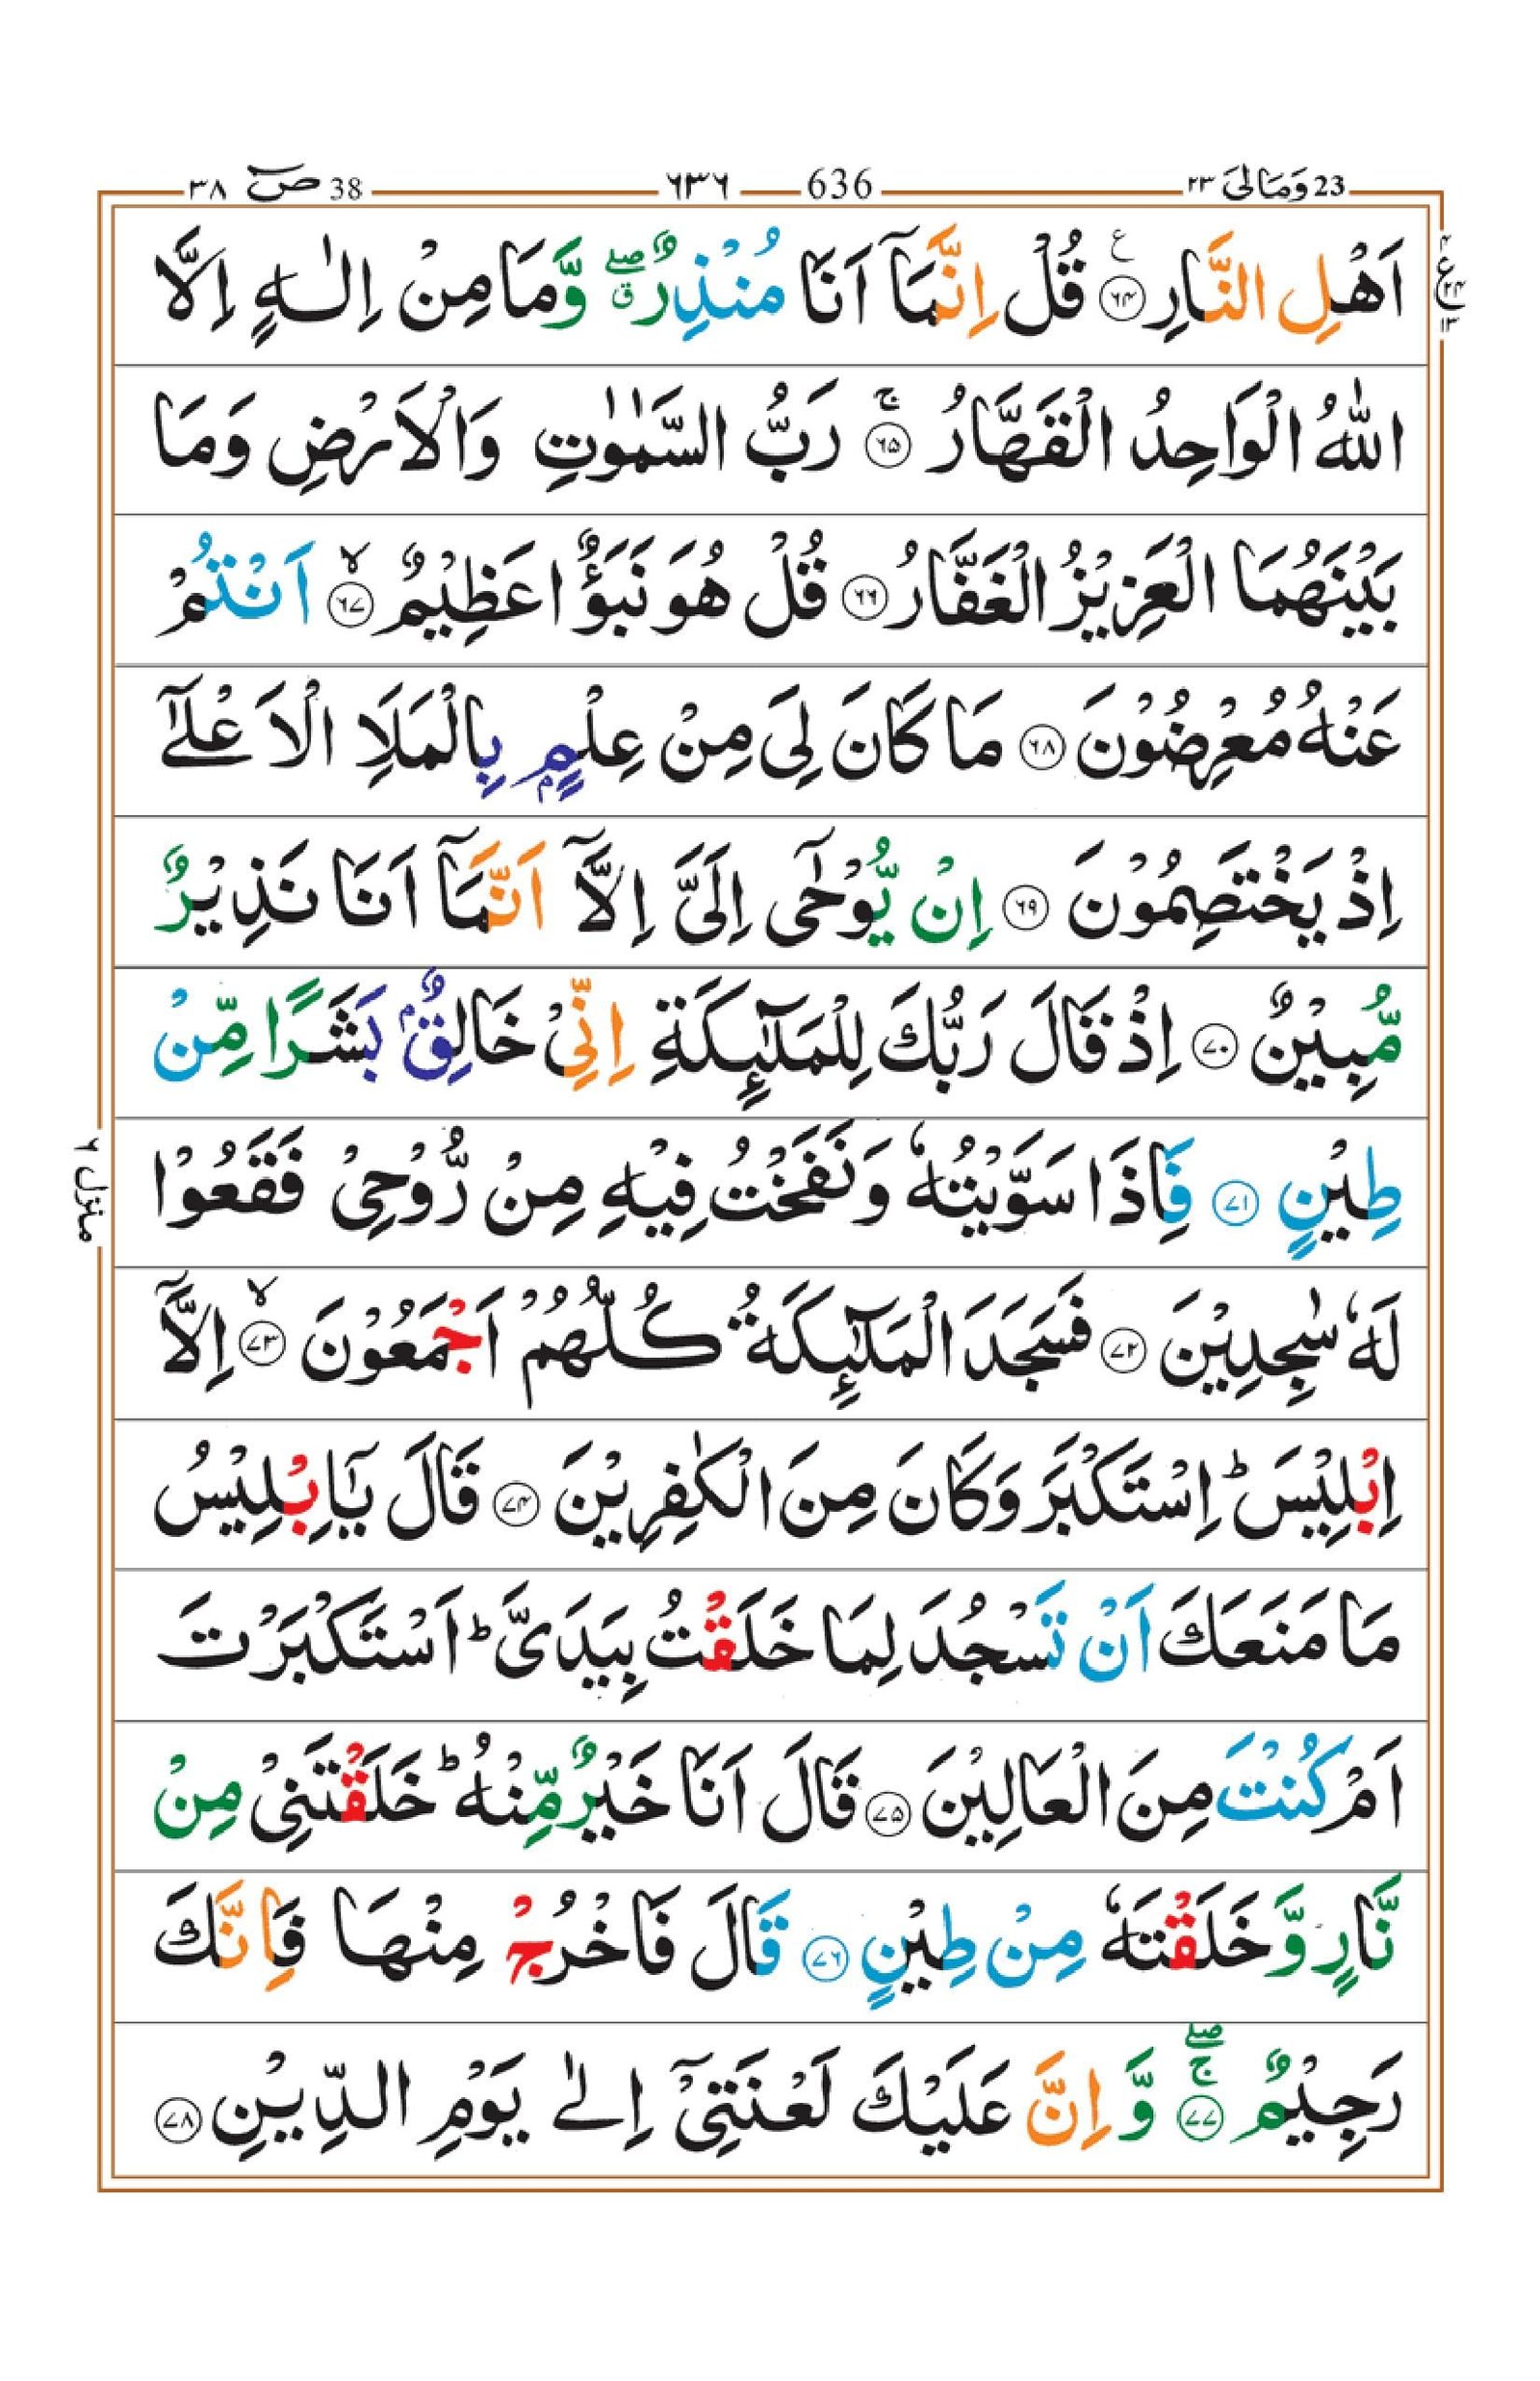 23 وَمَالِیَ ٢٣ 636 ٦٣٦ 38 صٓ ٣٨
اَهْلِ النَّارِ ﴿۶۴﴾ قُلْ اِنَّمَاۤ اَنَا مُنْذِرٌ ۖق وَّمَا مِنْ اِلٰهٍ اِلَّا
ع ۴ ۲۴ ۱۳
اللّٰهُ الْوَاحِدُ الْقَهَّارُ ﴿۶۵﴾ ۚ رَبُّ السَّمٰوٰتِ وَالْاَرْضِ وَمَا
بَيْنَهُمَا الْعَزِيْزُ الْغَفَّارُ ﴿۶۶﴾ قُلْ هُوَ نَبَؤٌا عَظِيْمٌ ﴿۶۷﴾ ۙ اَنْتُمْ
عَنْهُ مُعْرِضُوْنَ ﴿۶۸﴾ مَا كَانَ لِیَ مِنْ عِلْمٍۭ بِالْمَلَاِ الْاَعْلٰۤى
اِذْ يَخْتَصِمُوْنَ ﴿۶۹﴾ اِنْ يُّوْحٰۤى اِلَیَّ اِلَّاۤ اَنَّمَاۤ اَنَا نَذِيْرٌ
مُّبِيْنٌ ﴿۷۰﴾ اِذْ قَالَ رَبُّكَ لِلْمَلٰٓئِكَةِ اِنِّیْ خَالِقٌۢ بَشَرًا مِّنْ
طِيْنٍ ﴿۷۱﴾ فَاِذَا سَوَّيْتُهٗ وَنَفَخْتُ فِيْهِ مِنْ رُّوْحِیْ فَقَعُوْا
منزل ۶
لَهٗ سٰجِدِيْنَ ﴿۷۲﴾ فَسَجَدَ الْمَلٰٓئِكَةُ كُلُّهُمْ اَجْمَعُوْنَ ﴿۷۳﴾ ۙ اِلَّاۤ
اِبْلِيْسَ ؕ اِسْتَكْبَرَ وَكَانَ مِنَ الْكٰفِرِيْنَ ﴿۷۴﴾ قَالَ يٰۤاِبْلِيْسُ
مَا مَنَعَكَ اَنْ تَسْجُدَ لِمَا خَلَقْتُ بِيَدَیَّ ؕ اَسْتَكْبَرْتَ
اَمْ كُنْتَ مِنَ الْعَالِيْنَ ﴿۷۵﴾ قَالَ اَنَا خَيْرٌ مِّنْهُ ؕ خَلَقْتَنِیْ مِنْ
نَّارٍ وَّخَلَقْتَهٗ مِنْ طِيْنٍ ﴿۷۶﴾ قَالَ فَاخْرُجْ مِنْهَا فَاِنَّكَ
رَجِيْمٌ ﴿۷۷﴾ ۚۖ وَّاِنَّ عَلَيْكَ لَعْنَتِیْۤ اِلٰى يَوْمِ الدِّيْنِ ﴿۷۸﴾